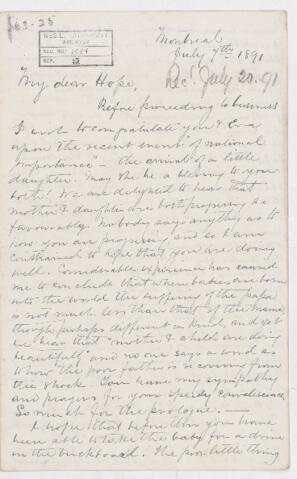 Montreal
July 7th 1891
Rec'd July 20. 91
My dear Hope,
Before proceeding to business
I wish to congratulate you &
upon the recent event "of national
importance" - the arrival of a little
daughter. May she be a blessing to you
both! We are delighted to hear that
mother & daughter are both progressing so
favourably. Nobody says anything as to
how you are progressing and so I am
constrained to hope that you are doing
well. Considerable experience has caused
me to conclude that when babies are born
into the world the suffering of the papa
is not much less than that of the mama
though perhaps different in kind, and yet
we hear that "mother & child are doing
beautifully" and no one says a word as
to how the poor father is recovering from
the shock. You have my sympathy
and prayers for your speedy convalescence.
So much for the prologue. —
I hope that before this you have
been able to take the baby for a drive
in the buckboard. The poor little thing